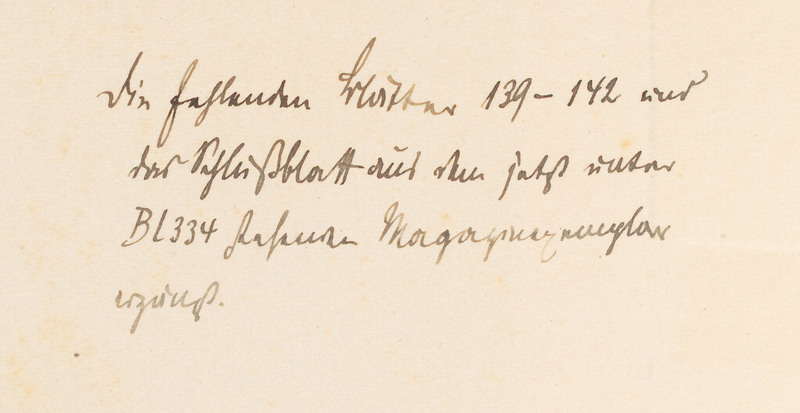 Die fehlenden Blätter 139 – 142 und
das Schlußblatt aus dem jetzt unter
Bl 334 stehenden Magazinexemplar
ergänzt.